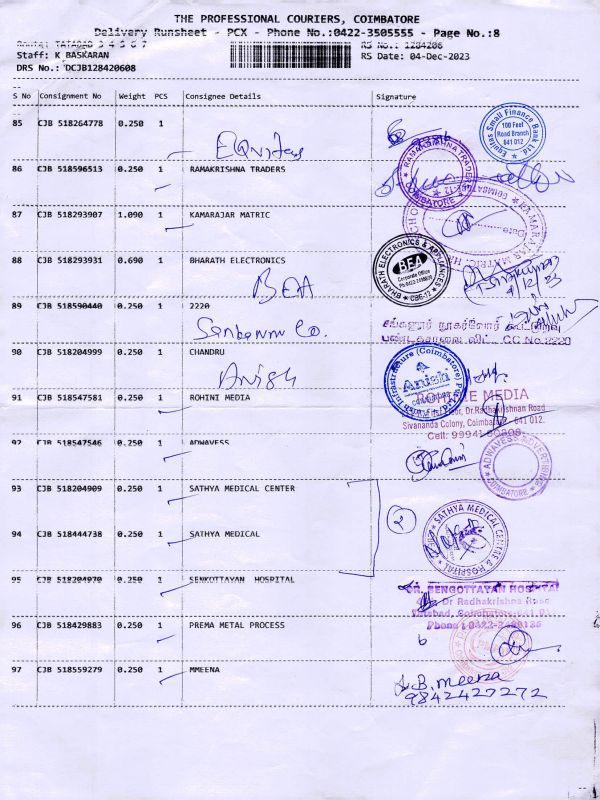 THE PROFESSIONAL COURIERS, COIMBATORE
Delivery Runsheet - PCX - Phone No.:0422-3505555 - Page No.:8
Route: TATABAD 3 4 5 6 7 RS No.: 1284206
Staff: K BASKARAN RS Date: 04-Dec-2023
DRS No.: DCJB128420608
S No Consignment No Weight PCS Consignee Details Signature
85 CJB 518264778 0.250 1
Equitas
Equitas Small Finance Bank Ltd.
100 Feet
Road Branch
641 012
86 CJB 518596513 0.250 1 RAMAKRISHNA TRADERS
RAMAKRISHNA TRADERS
COIMBATORE
87 CJB 518293907 1.090 1 KAMARAJAR MATRIC
Date
88 CJB 518293931 0.690 1 BHARATH ELECTRONICS
BEA
BHARATH ELECTRONICS & APPLIANCES
BEA
Corporate Office
CBE-12
89 CJB 518590440 0.250 1 2220
Co.
CC No.2220
90 CJB 518204999 0.250 1 CHANDRU
Anish
Anish Infrastructure (Coimbatore)
Anish
91 CJB 518547581 0.250 1 ROHINI MEDIA
ROHINI MEDIA
Floor, Dr.Radhakrishnan Road
Sivananda Colony, Coimbatore - 641 012.
Cell: 99941
92 CJB 518547546 0.250 1 ADWAVESS
ADWAVESS ADVERTISING
COIMBATORE
93 CJB 518204909 0.250 1 SATHYA MEDICAL CENTER
2
94 CJB 518444738 0.250 1 SATHYA MEDICAL
SATHYA MEDICAL CENTRE & HOSPITAL
95 CJB 518204970 0.250 1 SENKOTTAYAN HOSPITAL
DR. SENGOTTAYAN HOSPITAL
Dr Radhakrishna Road
Tatabad, Coimbatore-641 012
96 CJB 518429883 0.250 1 PREMA METAL PROCESS
97 CJB 518559279 0.250 1 MMEENA
B. meena
9842427272